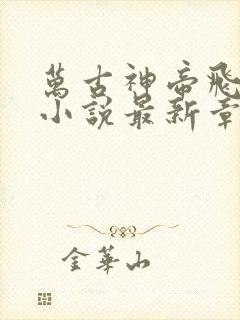 萬古神帝飛
小說最新章
金華山